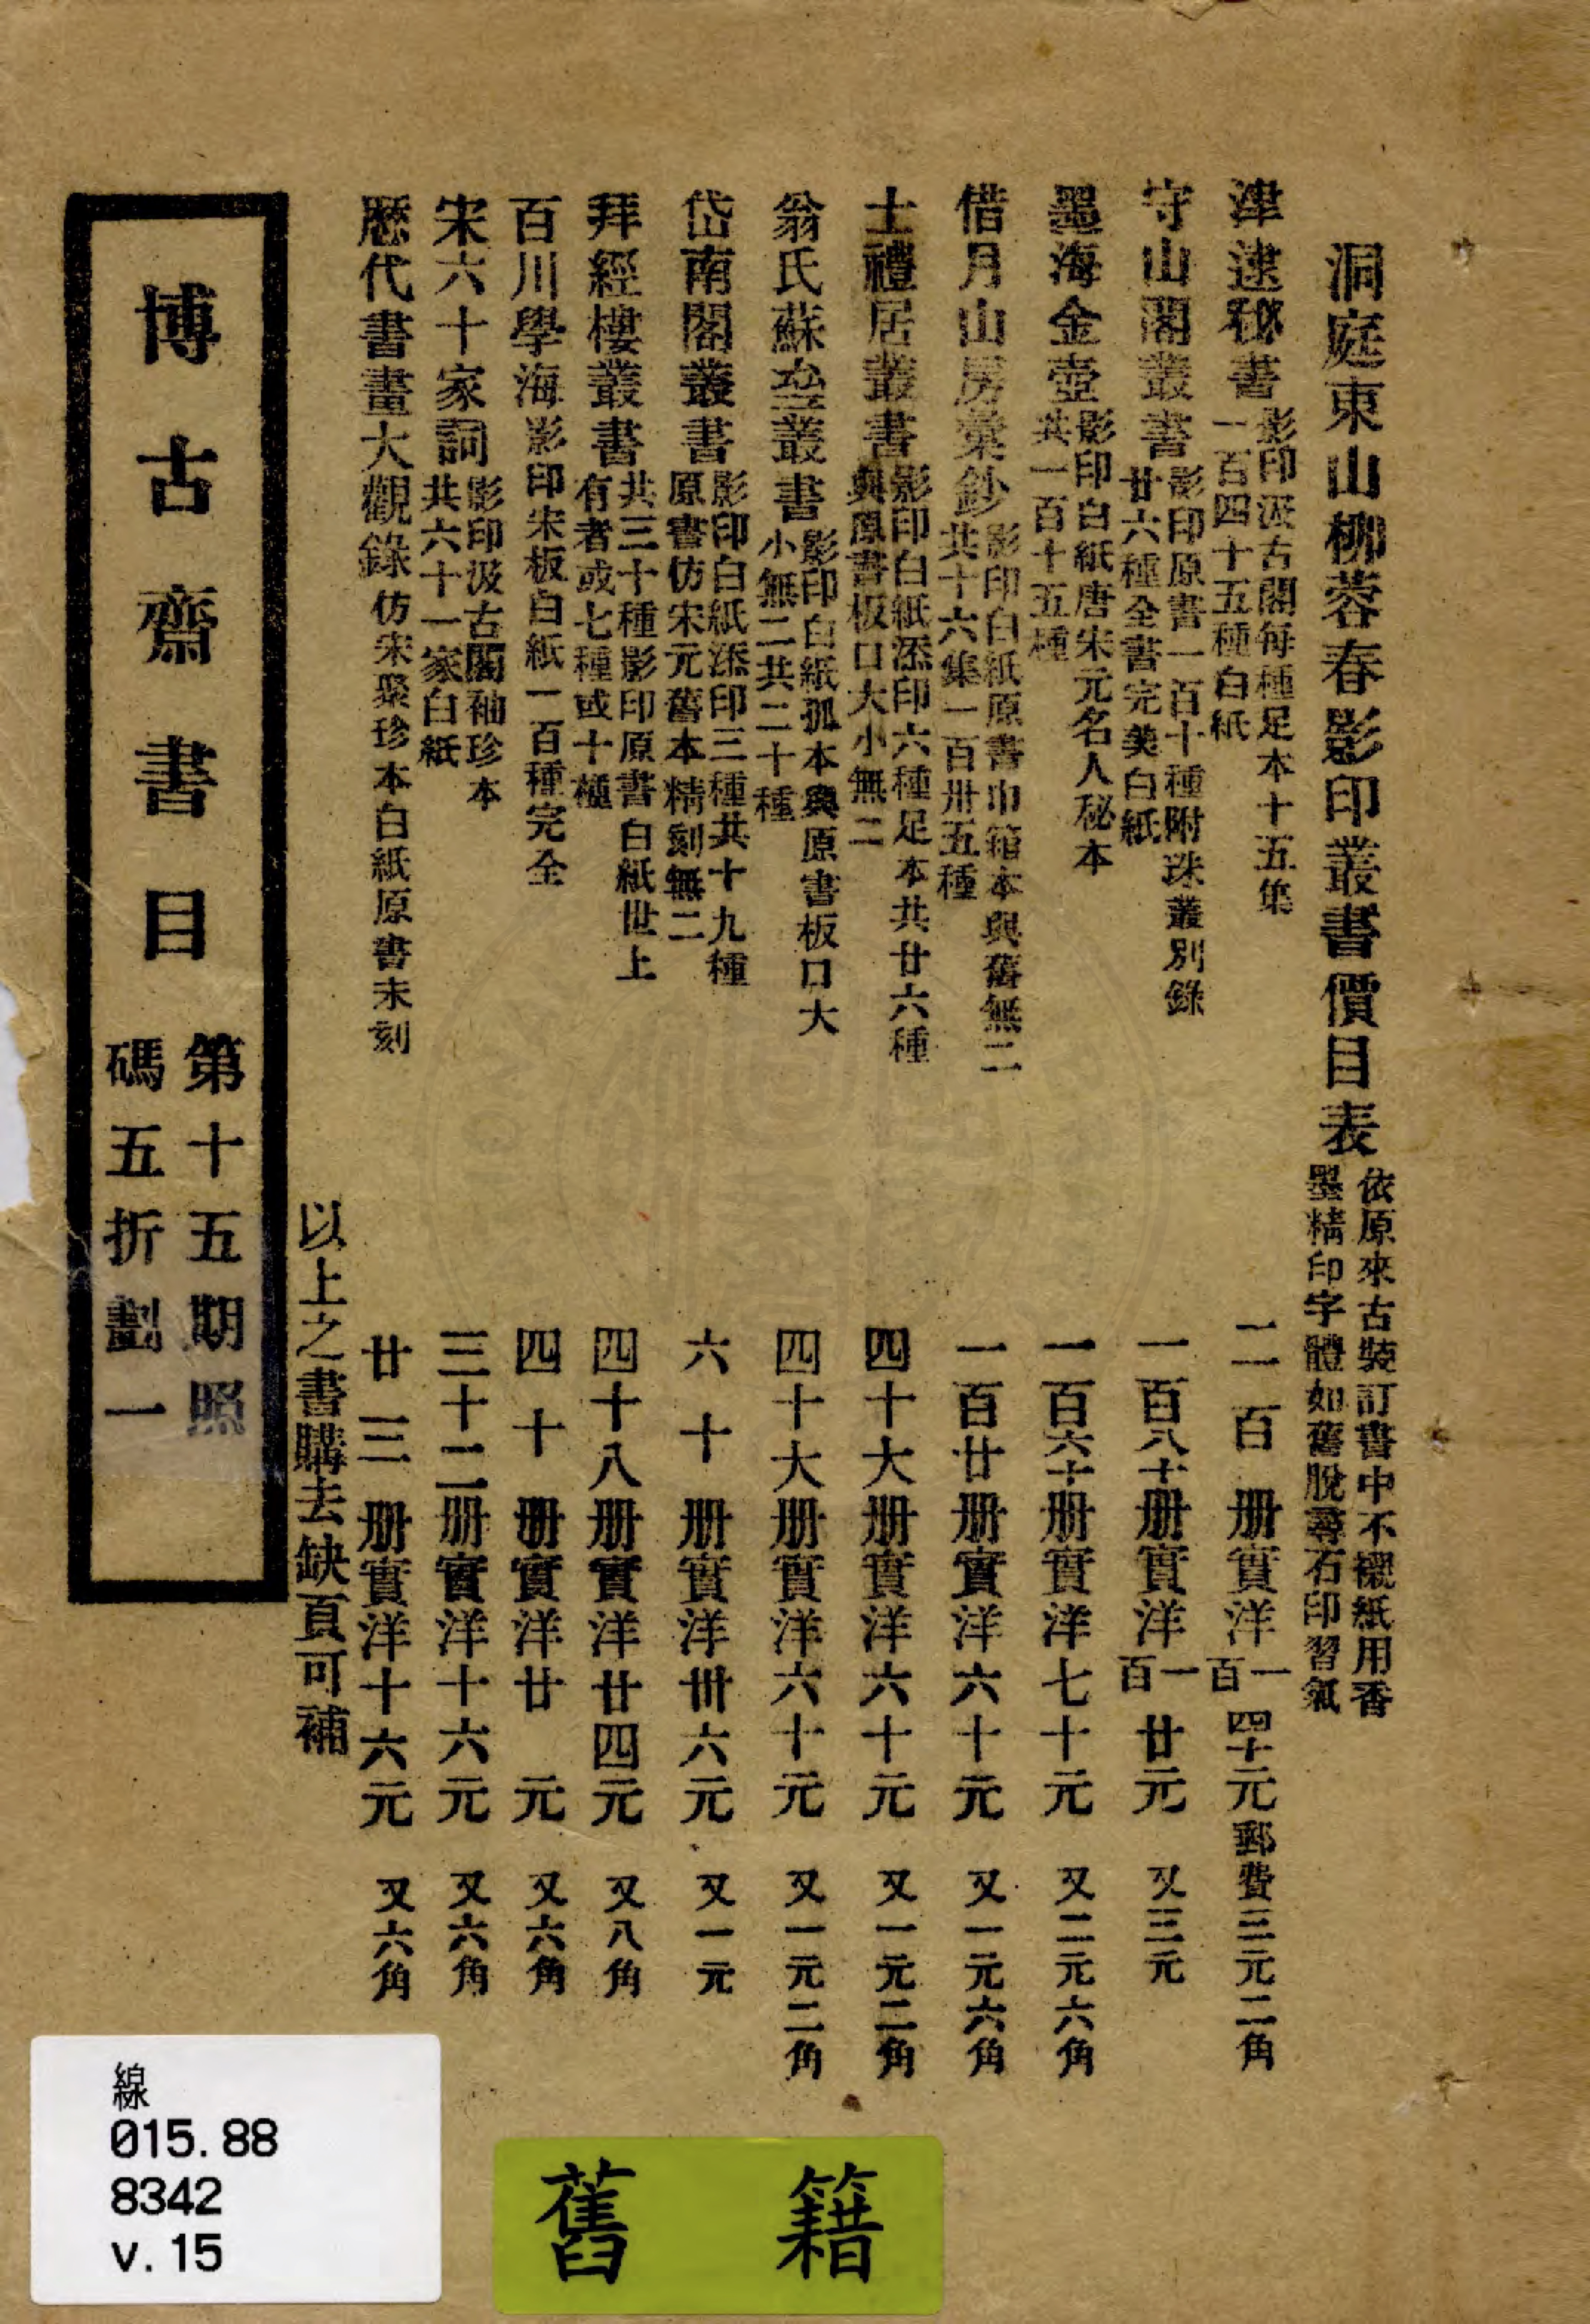 洞庭東山柳蓉春影印叢書價目表
依原來古裝訂書中不襯紙用香
墨精印字體如舊脫尋石印習氣
津逮秘書
影印汲古閣每種足本十五集
一百四十五種白紙
二百册實洋一百四十元郵費三元二角
守山閣叢書
影印原書一百十種附珠叢別錄
廿六種全書完美白紙
一百八十册實洋一百廿元又三元
墨海金壺
影印白紙唐宋元名人秘本
共一百十五種
一百六十册實洋七十元又二元六角
借月山房彙鈔
影印白紙原書巾箱本與舊無二
共十六集一百卅五種
一百廿册實洋六十元又一元六角
士禮居叢書
影印白紙添印六種足本共廿六種
與原書板口大小無二
四十大册實洋六十元又一元二角
翁氏蘇齋叢書
影印白紙孤本與原書板口大
小無二共二十種
四十大册實洋六十元又一元二角
岱南閣叢書
影印白紙添印三種共十九種
原書仿宋元舊本精刻無二
六十册實洋卌六元又一元
拜經樓叢書
共三十種影印原書白紙世上
有者或七種或十種
四十八册實洋廿四元又八角
百川學海影印宋板白紙一百種完全
四十册實洋廿元又六角
宋六十家詞
影印汲古閣袖珍本
共六十一家白紙
三十二册實洋十六元又六角
歷代書畫大觀錄仿宋聚珍本白紙原書未刻
廿三册實洋十六元又六角
以上之書購去缺頁可補
博古齋書目
第十五期照
碼五折劃一
線
015.88
8342
v.15
舊籍